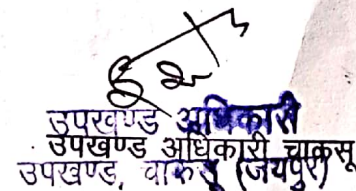 उपखण्ड अधिकारी
उपखण्ड अधिकारी चाकसू
उपखण्ड, चाकसू (जयपुर)